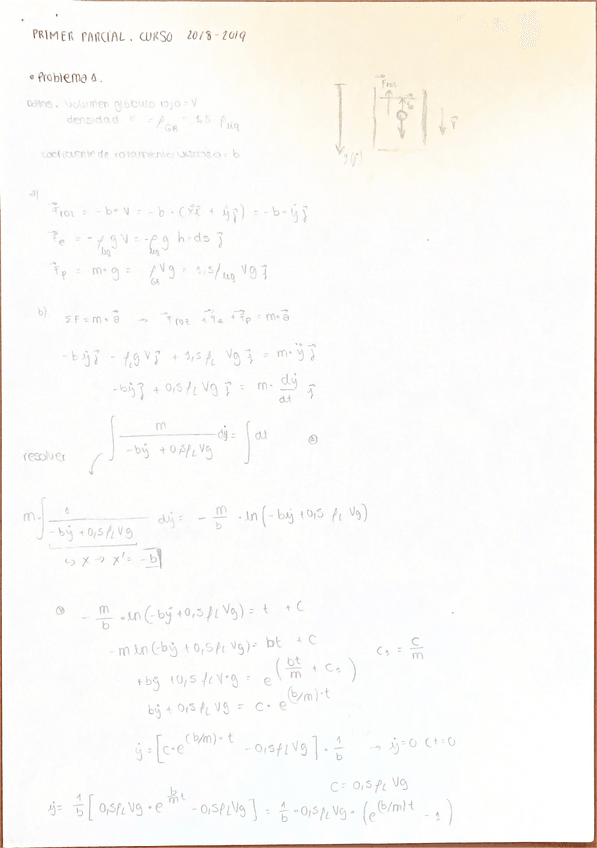 PRIMER PARCIAL. CURSO 2018-2019
• Problema 1.
Datos. Volumen glóbulo rojo = V
densidad " = ρ_GR = 1,5 ρ_líq
coeficiente de rozamiento viscoso = b
a)
F⃗roz = -b · v = -b · (ẋi⃗ + ẏj⃗) = -b · ẏj⃗
F⃗e = -ρ_líq g V = -ρ_líq g h · ds j⃗
F⃗p = m · g = ρ_GR V g = 1,5 ρ_líq V g j⃗
b) ΣF = m · a⃗ → F⃗roz + F⃗e + F⃗p = m · a⃗
-bẏj⃗ - ρ_L g V j⃗ + 1,5 ρ_L V g j⃗ = m · ÿ j⃗
-bẏj⃗ + 0,5 ρ_L V g j⃗ = m · dẏ/dt j⃗
∫ m/(-bẏ + 0,5 ρ_L V g) dẏ = ∫ dt
resolver
m · ∫ 1/(-bẏ + 0,5 ρ_L V g) dẏ = - m/b · ln(-bẏ + 0,5 ρ_L V g)
↳ x → x' = -b
- m/b · ln(-bẏ + 0,5 ρ_L V g) = t + C
-m ln(-bẏ + 0,5 ρ_L V g) = bt + C
C₁ = C/m
+bẏ + 0,5 ρ_L V · g = e^(bt/m + C₁)
bẏ + 0,5 ρ_L V g = C · e^(b/m) · t
ẏ = [C · e^(b/m) · t - 0,5 ρ_L V g] · 1/b → ẏ = 0 t = 0
C = 0,5 ρ_L V g
ẏ = 1/b [0,5 ρ_L V g · e^(b/m t) - 0,5 ρ_L V g] = 1/b · 0,5 ρ_L V g · (e^(b/m) t - 1)